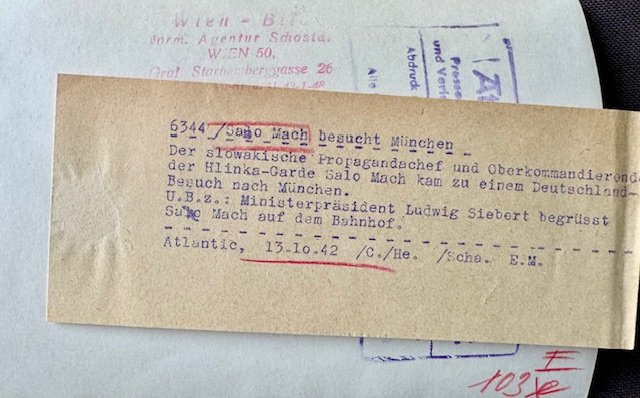 Wien - Bil
vorm. Agentur Schosta
WIEN 50,
Graf Starhemberggasse 26
Presse
und Verl
Abdruck
Alle
6344 /Salo Mach besucht München
Der slowakische Propagandachef und Oberkommandierende
der Hlinka-Garde Salo Mach kam zu einem Deutschland-
Besuch nach München.
U.B.z.: Ministerpräsident Ludwig Siebert begrüsst
Salo Mach auf dem Bahnhof.
Atlantic, 13.10.42 /C./He. /Scha. E.M.
I
103